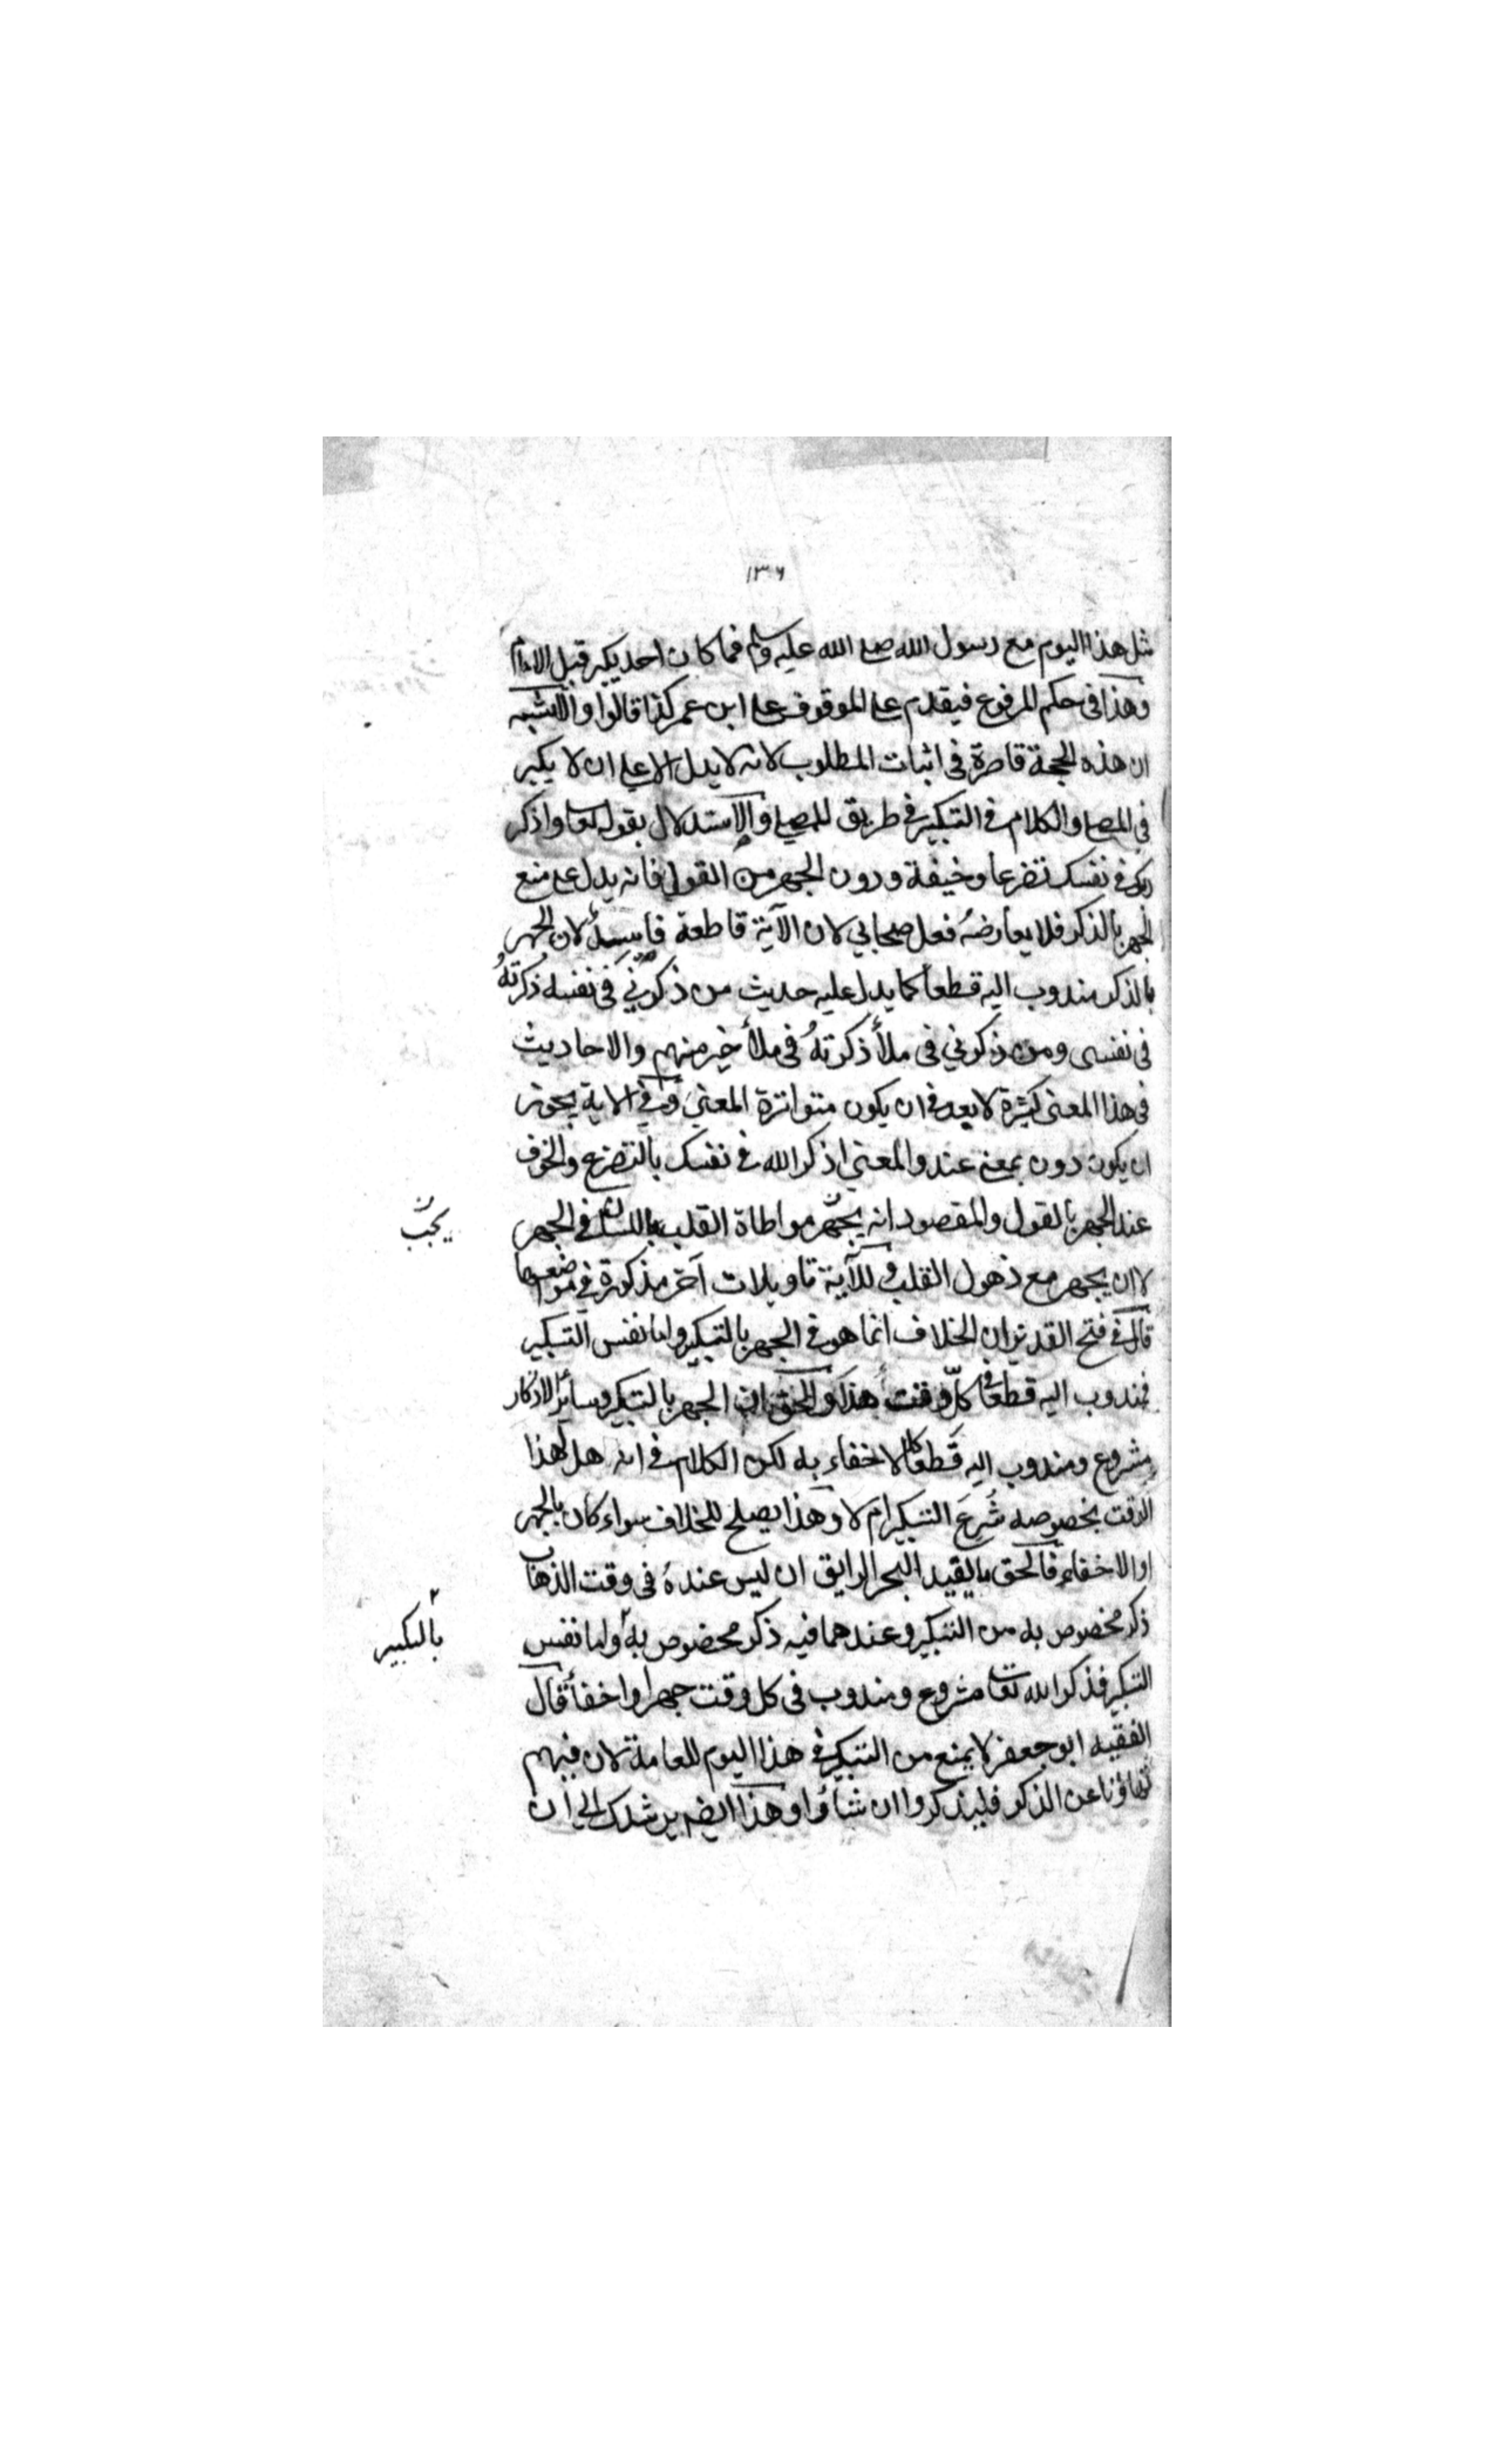 ١٣٦
مثل هذا اليوم مع رسول الله صلى الله عليه وسلم فما كان احد يكبر قبل الامام
وهذا فى حكم المرفوع فيقدم على الموقوف على ابن عمر كذا قالوا والاشبه
ان هذه الحجة قاصرة فى اثبات المطلوب لانه لا يدل الا على ان لا يكبر
فى المصلى والكلام فى التكبير فى طريق المصلى والاستدلال بقوله تعالى واذكر
ربك فى نفسك تضرعا وخيفة ودون الجهر من القول فانه يدل على منع
الجهر بالذكر فلا يعارضه فعل صحابي لان الآية قاطعة فاسد لان الجهر
بالذكر مندوب اليه قطعا كما يدل عليه حديث من ذكرني فى نفسه ذكرته
فى نفسى ومن ذكرني فى ملأ ذكرته فى ملأ خير منهم والاحاديث
فى هذا المعنى كثيرة لا يبعد فى ان يكون متواترة المعنى وفى الاية يجوز
ان يكون دون بمعنى عند والمعنى اذكر الله فى نفسك بالتضرع والخوف
عند الجهر بالقول والمقصود انه يجهر مواطاة القلب باللسان فى الجهر
يجب
لا ان يجهر مع ذهول القلب وللآية تاويلات آخر مذكورة فى مواضعها
قال فى فتح القدير ان الخلاف انما هو فى الجهر بالتكبير واما نفس التكبير
فمندوب اليه قطعا فى كل وقت هذا والحق ان الجهر بالتكبير وسائر الاذكار
مشروع ومندوب اليه قطعا لا خفاء به لكن الكلام فى انه هل لهذا
الوقت بخصوصه شرع التكبير ام لا وهذا يصلح للخلاف سواء كان بالجهر
او الاخفاء فالحق ما يفيد البحر الرايق ان ليس عنده فى وقت الذهاب
ذكر مخصوص به من التكبير وعندهما فيه ذكر مخصوص به واما نفس
بالتكبير
التكبير فذكر الله تعالى مشروع ومندوب فى كل وقت جهرا واخفأ قال
الفقيه ابو جعفر لا يمنع من التكبير فى هذا اليوم للعامة لان فيهم
تهاؤنا عن الذكر فليذكروا ان شاؤا وهذا ايضا يرشدك الى ان